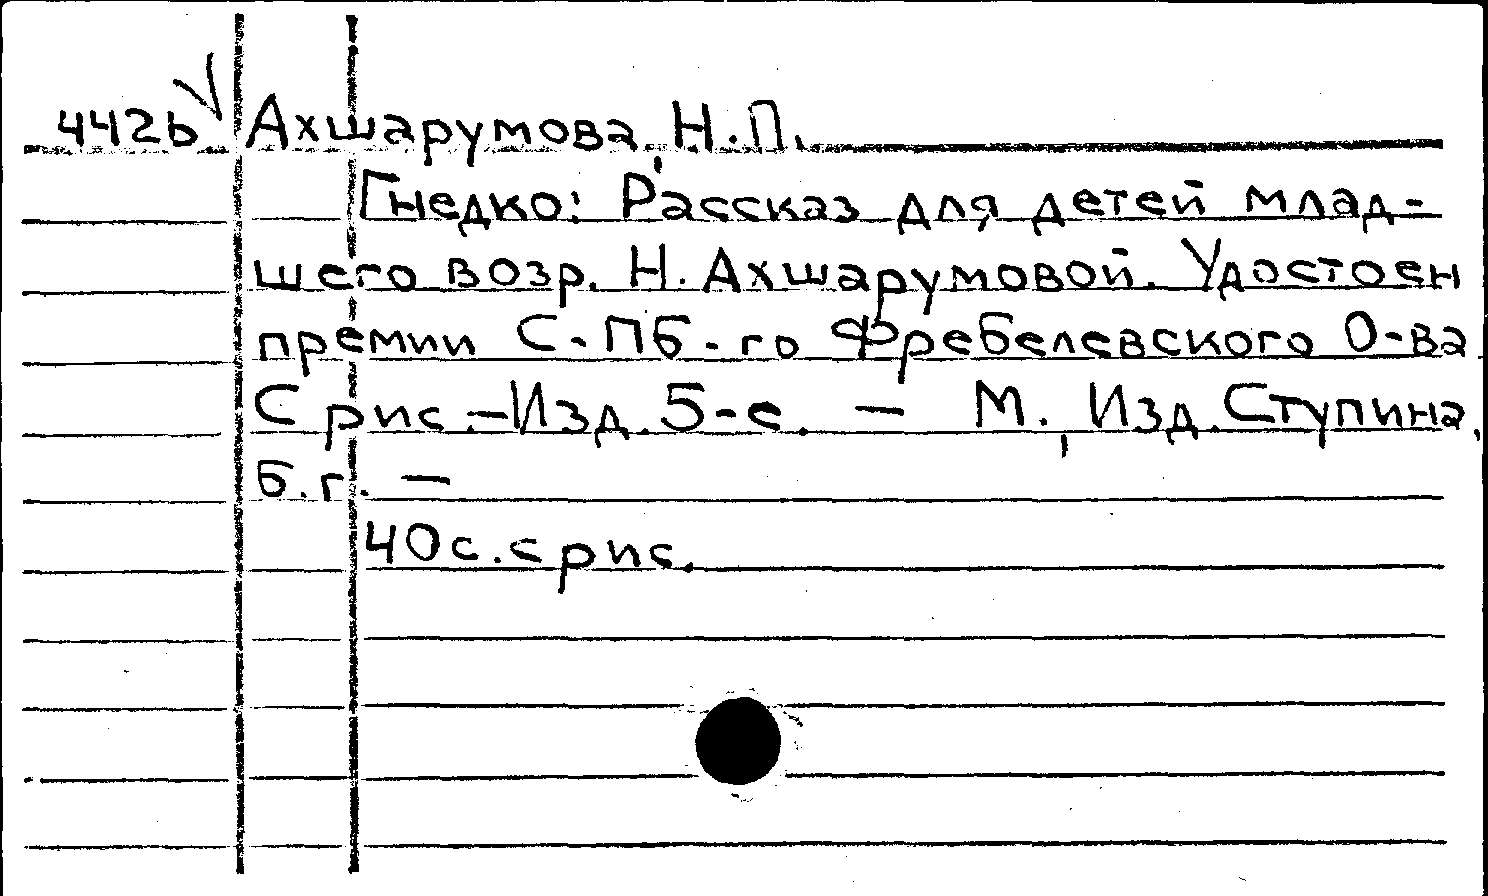 442b Ахшарумова, Н.П.
Гнедко: Рассказ для детей млад-
шего возр. Н. Ахшарумовой. Удостоен
премии С-ПБ-го Фребелевского О-ва
С рис.-Изд. 5-е. — М., Изд. Ступина,
б.г. —
40с. с рис.